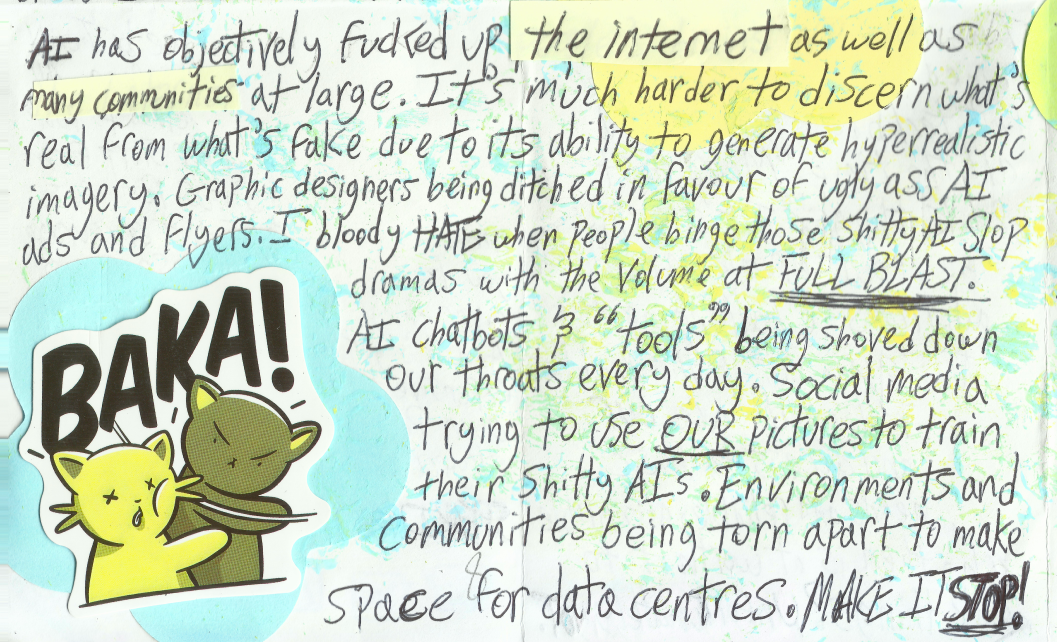 AI has objectively fucked up the internet as well as
many communities at large. It's much harder to discern what's
real from what's fake due to its ability to generate hyperrealistic
imagery. Graphic designers being ditched in favour of ugly ass AI
ads and flyers. I bloody HATE when people binge those shitty AI slop
dramas with the volume at FULL BLAST.
BAKA!
AI chatbots & “tools” being shoved down
our throats every day. Social media
trying to use OUR pictures to train
their shitty AIs. Environments and
communities being torn apart to make
space for data centres. MAKE IT STOP!